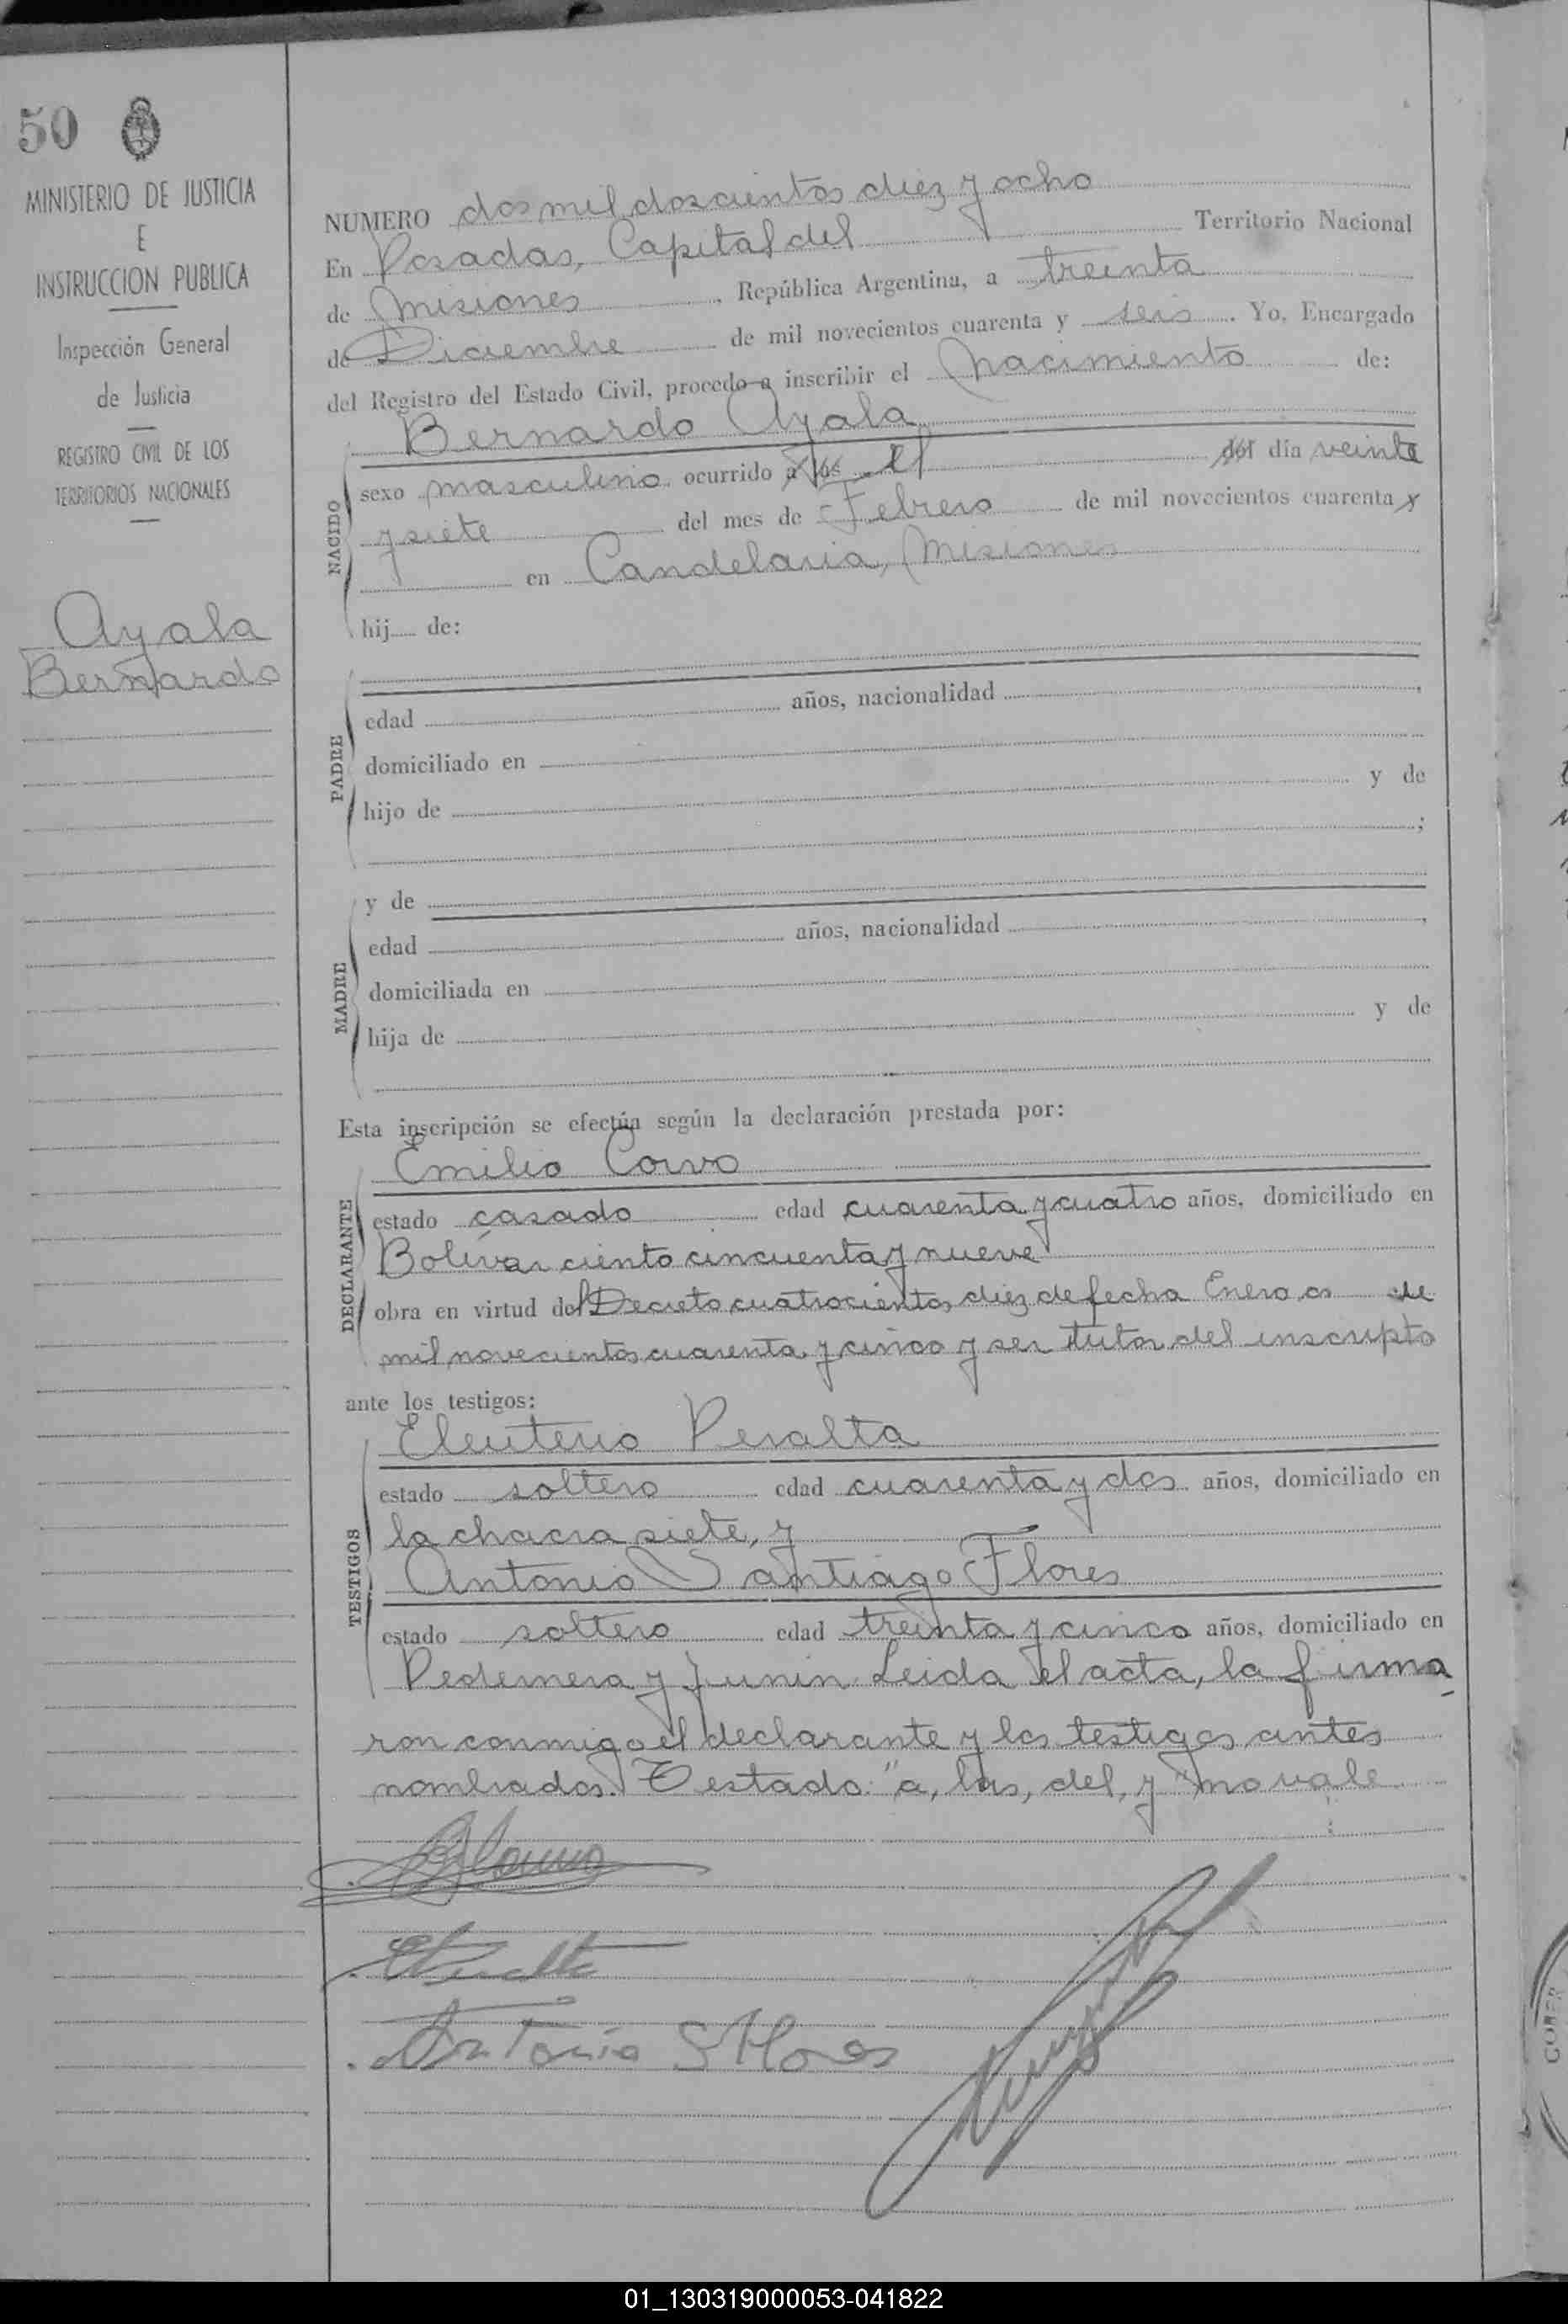 50
MINISTERIO DE JUSTICIA
E
INSTRUCCION PUBLICA
Inspección General
de Justicia
REGISTRO CIVIL DE LOS
TERRITORIOS NACIONALES
Ayala
Bernardo
NUMERO dos mil doscientos diez y ocho
En Posadas, Capital del Territorio Nacional
de Misiones, República Argentina, a treinta
de Diciembre de mil novecientos cuarenta y seis. Yo, Encargado
del Registro del Estado Civil, procedo a inscribir el nacimiento de:
Bernardo Ayala
NACIDO
sexo masculino, ocurrido a las el del día veinte
y siete del mes de Febrero de mil novecientos cuarenta y
en Candelaria, Misiones
hij de:
PADRE
edad años, nacionalidad ,
domiciliado en
hijo de y de
;
MADRE
y de
edad años, nacionalidad ,
domiciliada en
hija de y de
Esta inscripción se efectúa según la declaración prestada por:
DECLARANTE
Emilio Corvo
estado casado edad cuarenta y cuatro años, domiciliado en
Bolívar ciento cincuenta y nueve
obra en virtud del Decreto cuatrocientos diez de fecha Enero de
mil novecientos cuarenta y cinco y ser tutor del inscripto
ante los testigos:
TESTIGOS
Eleuterio Peralta
estado soltero edad cuarenta y dos años, domiciliado en
la chacra siete, y
Antonio Santiago Flores
estado soltero edad treinta y cinco años, domiciliado en
Pedernera y Junin. Leida el acta, la firma
ron conmigo el declarante y los testigos antes
nombrados. Testado: "a, las, del, y" no vale
EPeralta
Antonio S Flores
01_130319000053-041822